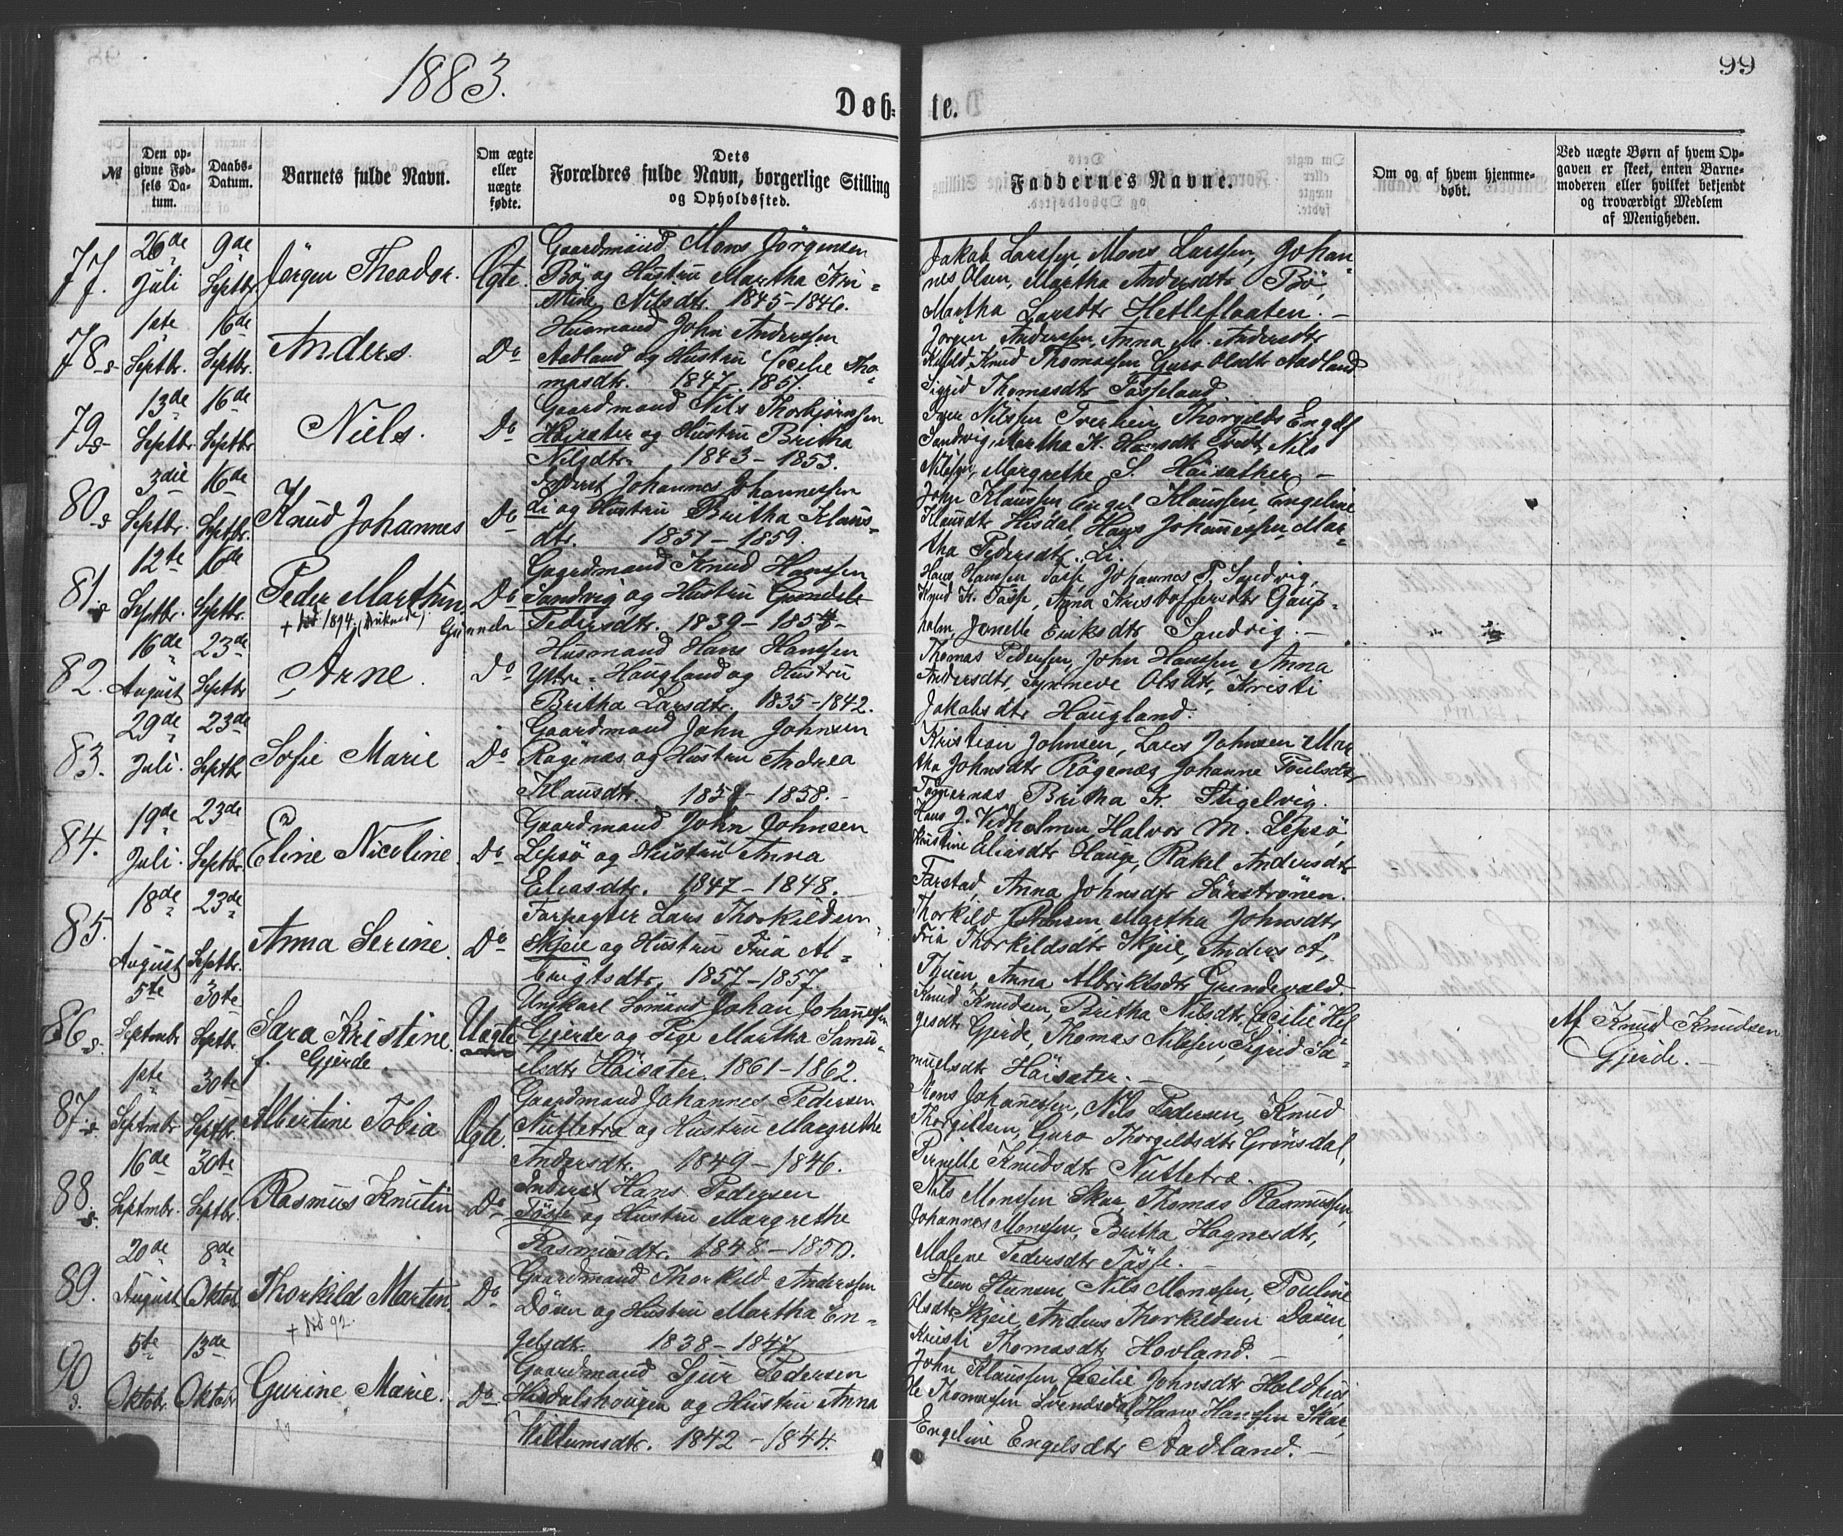 1883.
99
Døb-
te.
№
Den op-
givne Fød-
sels Da-
tum.
Daabs-
Datum.
Barnets fulde Navn.
Om ægte
eller
uægte
fødte.
Dets
Forældres fulde Navn, borgerlige Stilling
og Opholdssted.
Faddernes Navne.
Om og af hvem hjemme-
døbt.
Ved uægte Børn af hvem Op-
gaven er skeet, enten Barne-
moderen eller hvilket bekjendt
og troværdigt Medlem
af Menigheden.
77.
26de Juli
9de Septbr
Jørgen Theodor.
Ægte.
Gaardmand Mons Jörgensen
Bö og Hustru Martha Kri-
stine Nilsdtr. 1845-1846.
Jakob Larssen, Mons Larssen, Johan-
nes Olsen, Martha Andersdtr Bö,
Martha Larsdtr Hetlefloaten. -
78.s
1ste Septbr.
16de Septbr.
Anders.
Do
Husmand John Anderssen
Aadland og Hustru Cecilie Tho-
masdtr. 1847-1851.
Jörgen Anderssen, Anna M. Andersdtr
Knud Thomassen Guro Olsdtr Aadland
Sigrid Thomasdtr Tösseland.
79.s
13de Septbr
16de Septbr.
Niels.
Do
Gaardmand Nils Thorbjörnssen
Höisæter og Hustru Britha
Nilsdtr. 1843-1853.
Iver Nilssen
Sandvig, Martha K. Hansdtr Tvedt, Nils
Nilssen, Margrethe S. Höisæther. -
80.s
3die Septbr.
16de Septbr.
Knud Johannes
Do
Inderst Johannes Johannessen
Li og Hustru Britha Klaus-
dtr. 1851-1859.
John Klaussen, Engel Klaussen, Engeline
Klausdtr Hisdal, Hans Johannessen, Mar-
tha Pedersdtr. Li.
81.s
12te Septbr.
16de Septbr.
Peder Marthin
+ död 1894. (druknet)
Do
Gaardmand Knud Hanssen
Sandvig og Hustru Gundele
Gunnela
Pedersdtr. 1839-1854
Hans Hanssen Tösse Johannes P. Sandvig,
Knud K. Tösse, Anna Kristoffersdtr Gaup-
holm, Jonelle Eriksdtr Sandvig. -
82.
16de August
23de Septbr
Arne.
Do
Husmand Hans Hanssen
Yttre-Haugland og Hustru
Britha Larsdtr. 1835-1842.
Thomas Pederssen, John Hanssen, Anna
Andersdtr, Synneve Olsdtr, Kristi
Jakobsdtr Haugland.
83.
29de Juli.
23de Septbr
Sofie Marie
Do
Gaardmand John Johnsen
Rögenæs og Hustru Andrea
Klausdtr. 1858-1858. -
Kristian Johnsen, Lars Johnsen Mar-
tha Johnsdtr Rögenæs Johanne Poulsdtr
Britha K. Stigelvig.
84.
19de Juli.
23de Septbr
Eline Nicoline.
Do
Gaardmand John Johnsen
Lepsö og Hustru Anna
Eliasdtr. 1847-1848.
Hans J. Vedholmen Halvor M. Lepsö,
Kristine Eliasdtr Hauge, Rakel Andersdtr
Farstad, Anna Johnsdtr Sörströnen.
85.
18de August
23de Septbr.
Anna Serine.
Do
Forpagter Lars Thorkildsen
Skjeie og Hustru Fria Al-
brigtsdtr, 1857-1857.
Thorkild Johnsen, Martha Johnsdtr
Fria Thorkildsdtr Skjeie, Anders A.
Thuen, Anna Albriktsdtr Grindevald.
86.s
5te Septmbr
30te Septbr.
Sara Kristine.
f. Gjerde
Uægte
Ungkarl Sömand Johan Johannessen
Gjerde og Pige Martha Samu-
elsdtr Höisæter. 1861-1862.
Knud Knudsen, Britha Nilsdtr, Cecilie Hel-
gesdtr Gjerde, Thomas Nilssen, Sigrid Sa-
muelsdtr Höisæter. -
Af Knud Knudsen
Gjerde. -
87.s
1ste Septmbr
30te Septbr.
Albertine Tobia
Ægte.
Gaardmand Johannes Pedersen
Nutletræ og Hustru Margrethe
Andersdtr. 1849-1846.
Mons Johannessen, Nils Pedersen, Knud
Thorgilssen, Guro Thorgilsdtr Grönsdal,
Pernille Knudsdtr Nutletræ.
88.s
16de Septmbr.
30te Septbr.
Rasmus Knutin
Do
Inderst Hans Pedersen
Tösse og Hustru Margrethe
Rasmusdtr. 1848-1850.
Nils Monssen Skar, Thomas Rasmussen,
Johannes Monssen, Britha Hagnesdtr,
Malene Pedersdtr Tösse. -
89.
20de August
8de Oktob.
Thorkild Martin.
+ död 92.
Do
Gaardmand Thorkild Anderssen
Döuen og Hustru Martha En-
gelsdtr. 1838-1847
Steen Steensen, Nils Monssen, Pouline
Olsdtr Skjeie, Anders Thorkildsen Döuen,
Kristi Thomasdtr Hovland. -
90
s.
5te Oktobr.
13de Oktobr
Gurine Marie.
Do
Gaardmand Sjur Pedersen
Hisdalshougen og Hustru Anna
Willumsdtr. 1842-1844.
John Klaussen, Cecilie Johnsdtr Haldhus
Ole Thomassen Svendsdal, Hans Hanssen Skar,
Engeline Engelsdtr Aadland. -